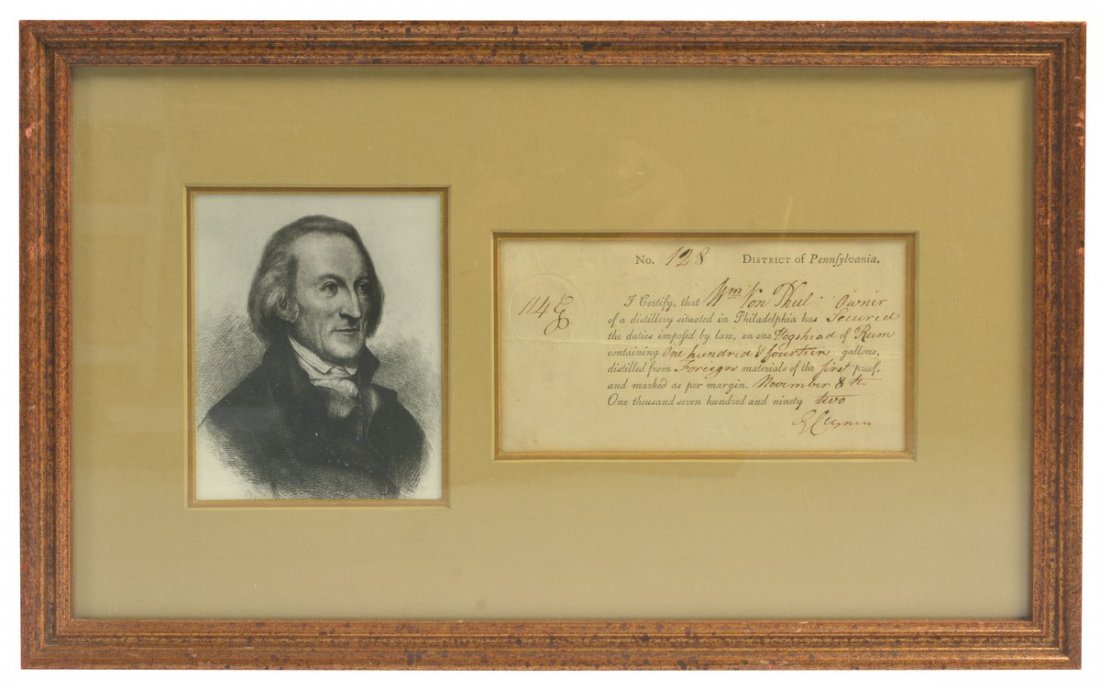 No. 128 District of Pennsylvania.
114 G
I Certify, that Wm Von Phul Owner
of a distillery situated in Philadelphia has Secured
the duties imposed by law, on one Hogshead of Rum
containing One hundred & fourteen gallons,
distilled from Foreign materials of the first proof,
and marked as per margin. November 8th
One thousand seven hundred and ninety two
G Clymer